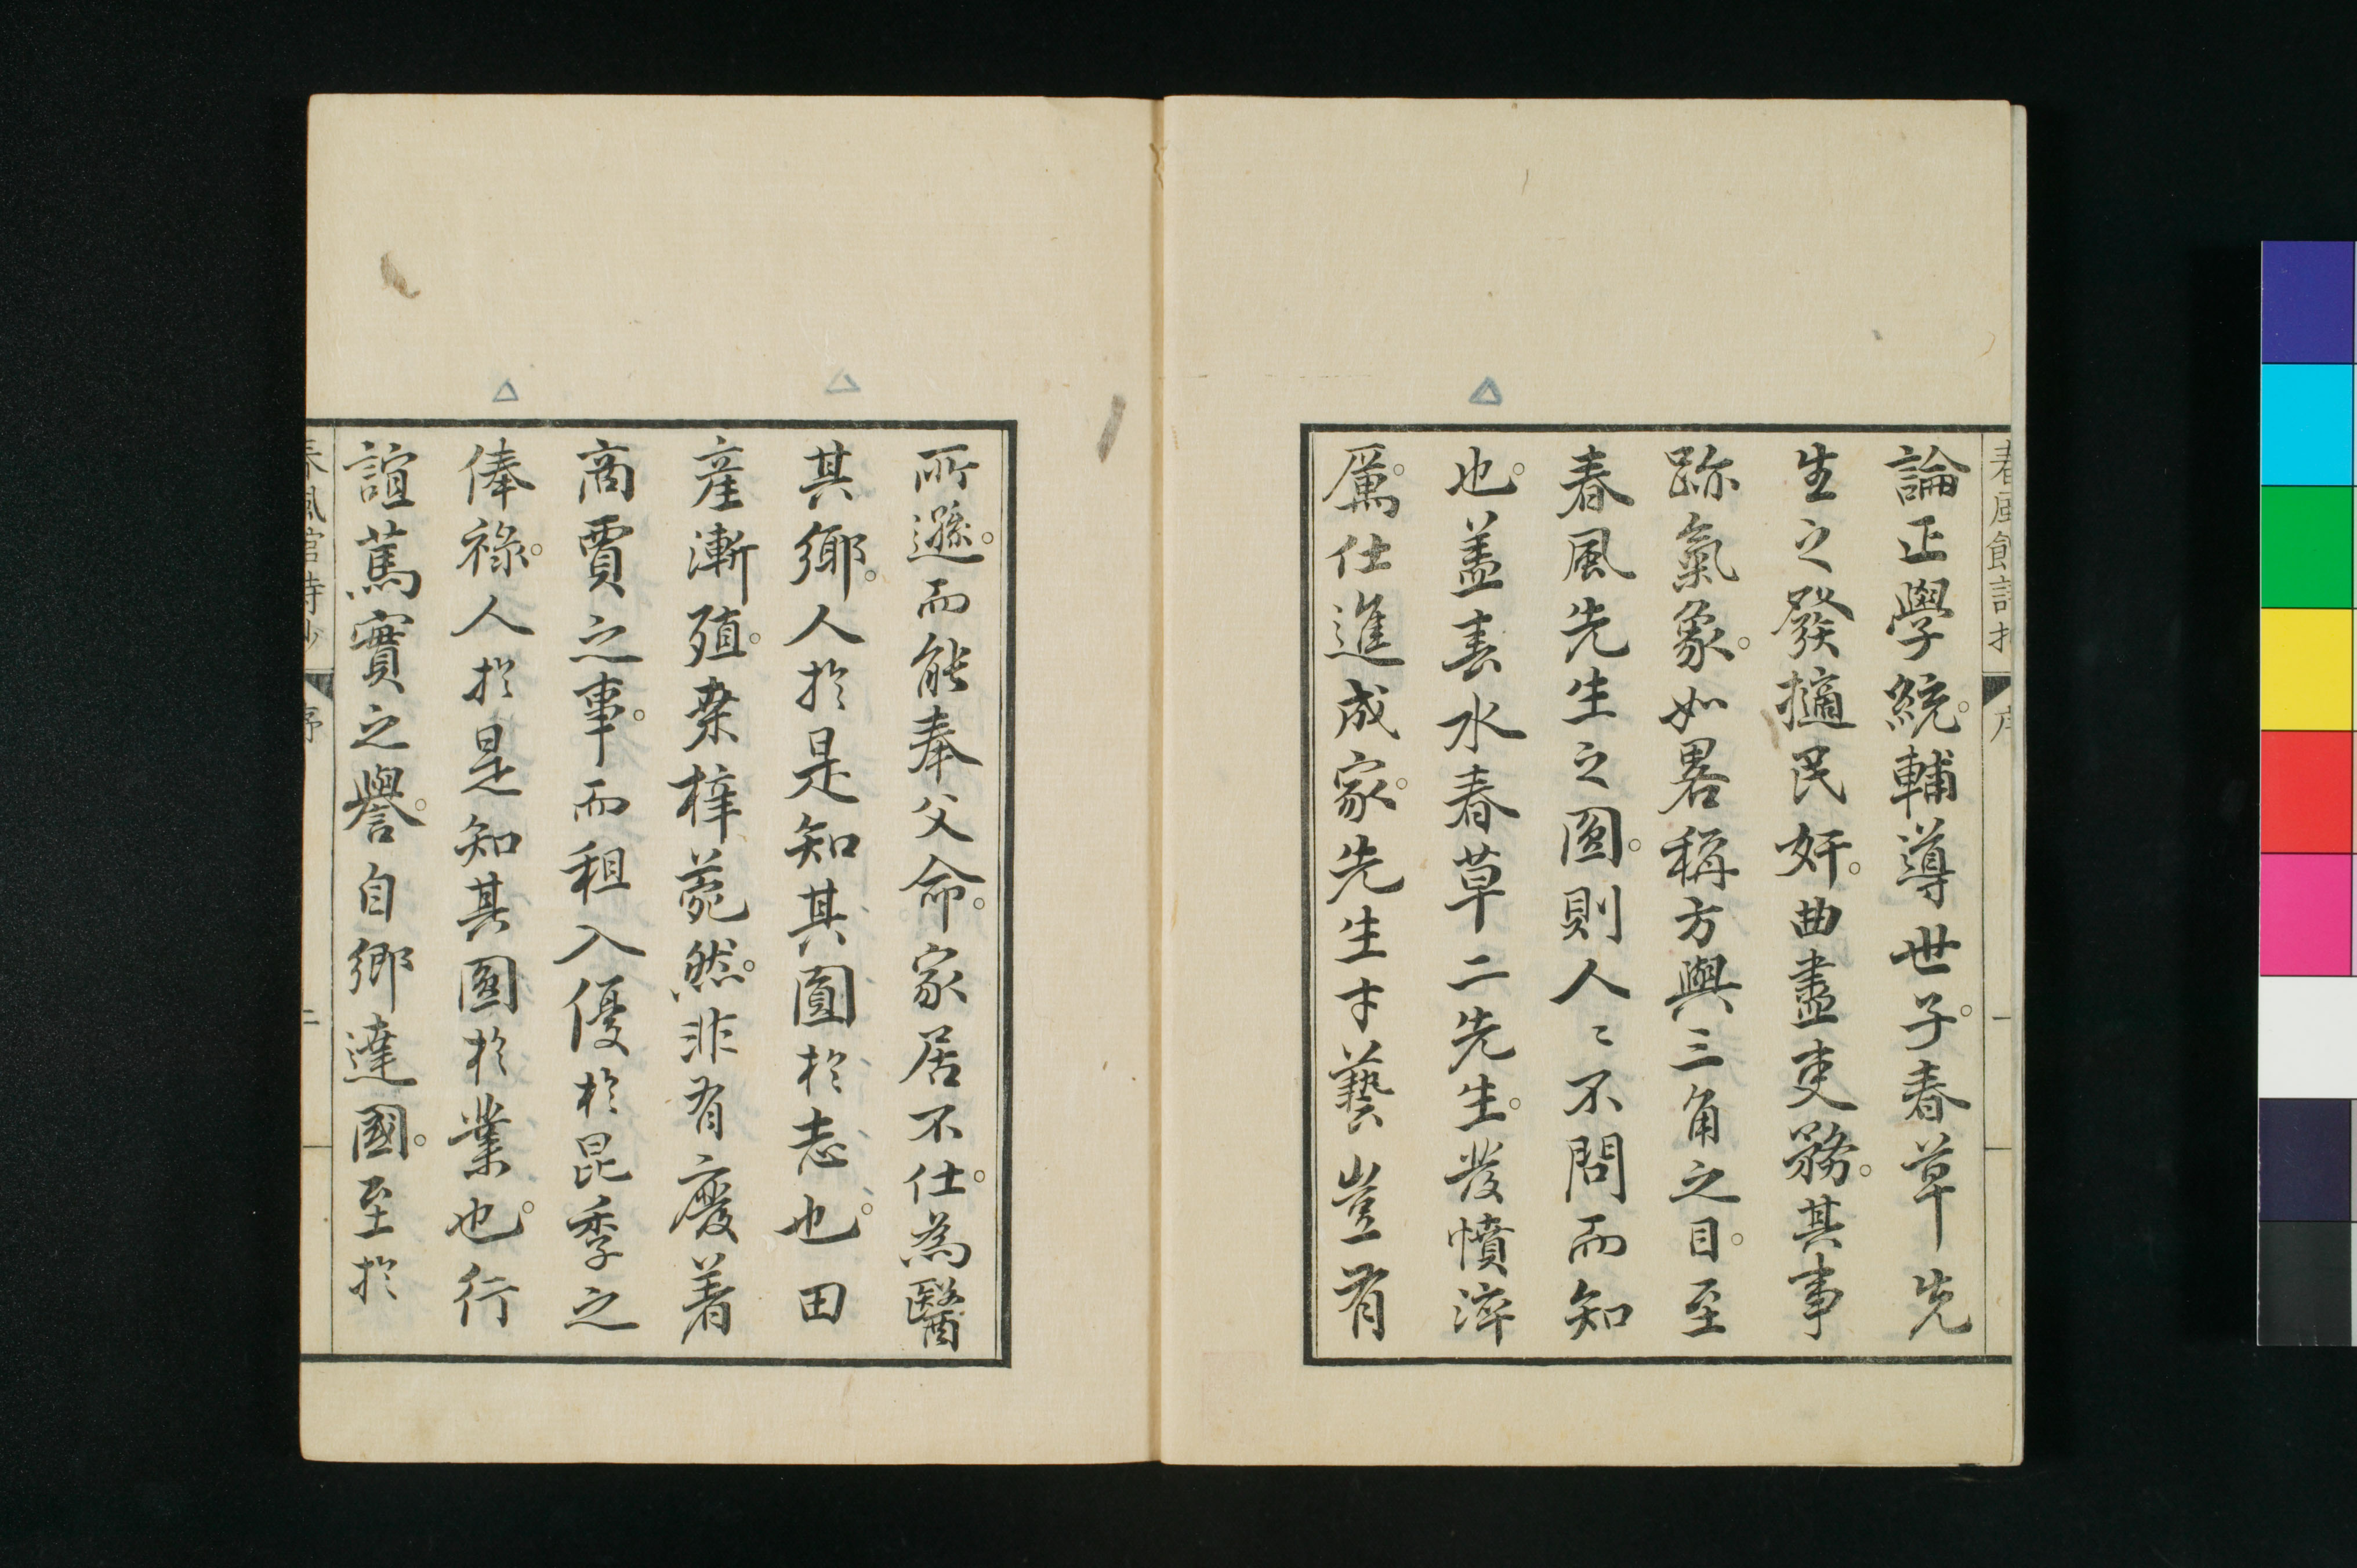 春風館詩抄
序
一
論正學統。輔導世子。春草先
生之發擿民奸。曲盡吏務。其事
跡氣象。如畧稱方與三角之目。至
春風先生之圓。則人〻不問而知
也。盖春水春草二先生。發憤淬
厲。仕進成家。先生才藝豈有
所遜。而能奉父命。家居不仕。為醫
其鄉。人於是知其圓於志也。田
產漸殖。桒梓菀然。非有廢着
商賈之事。而租入優於昆季之
俸祿。人於是知其圓於業也。行
誼篤實之譽。自鄉達國。至於
春風館詩抄
序
二